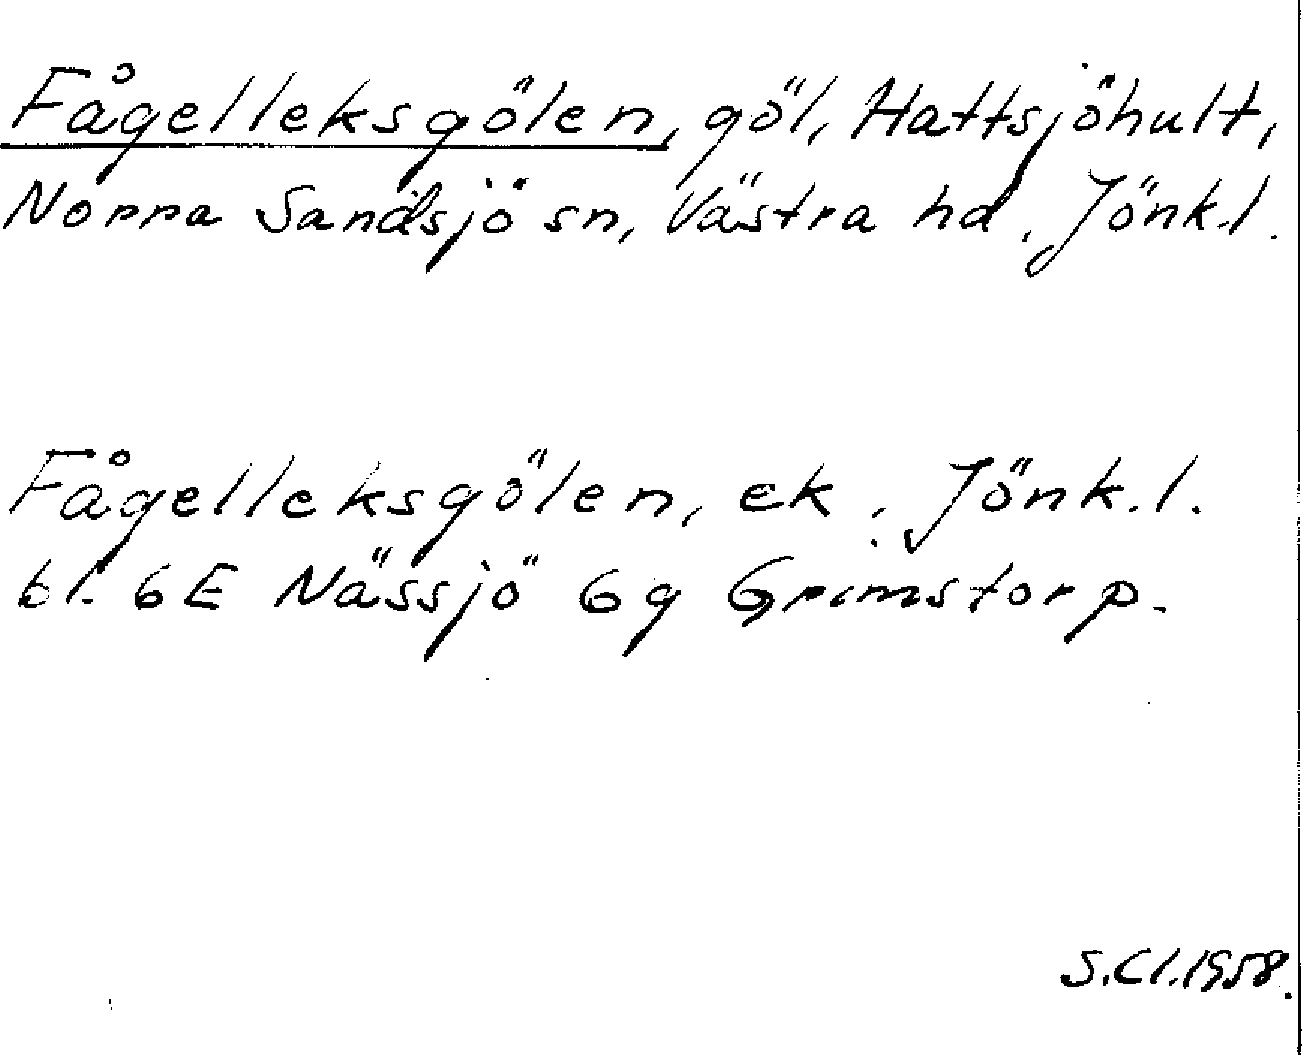 Fågelleksgölen, göl, Hattsjöhult,
Norra Sandsjö sn, Västra hd, Jönk.l.
Fågelleksgölen, ek. Jönk.l.
bl. 6E Nässjö 6g Grimstorp.
S.Cl.1958.